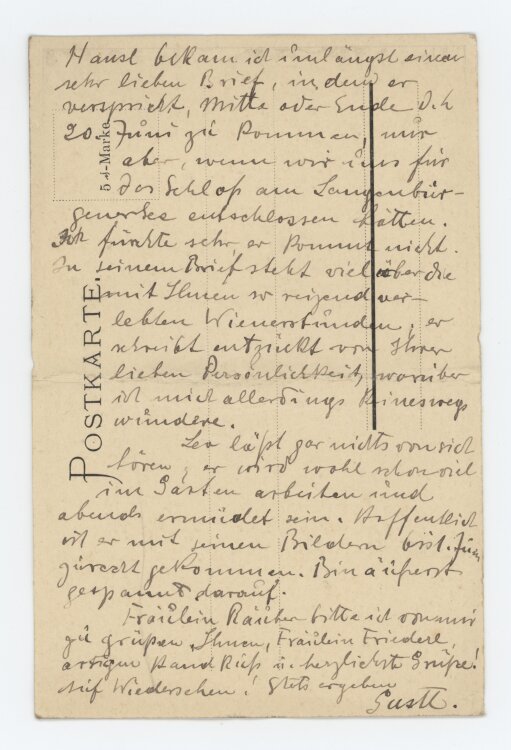 Hansl bekam ich unlängst einen
sehr lieben Brief, in dem er
verspricht, Mitte oder Ende
20. Juni zu kommen, nur
aber, wenn wir uns für
das Schloß am Langenbür-
genersee entschlossen hätten.
Ich fürchte sehr, er kommt nicht.
In seinem Brief steht viel über die
mit Ihnen so reizend ver-
lebten Wienerstunden, er
schreibt entzückt von Ihrer
lieben Persönlichkeit, worüber
ich mich allerdings keineswegs
wundere.
Leo läßt gar nichts von sich
hören, er wird wohl schon viel
im Garten arbeiten und
abends ermüdet sein. Hoffentlich
ist er mit seinen Bildern
zurecht gekommen. Bin äußerst
gespannt darauf.
Fräulein Räuber bitte ich von mir
zu grüßen, Ihnen, Fräulein Friederl,
artigen Handkuß u. herzlichste Grüße!
Auf Wiedersehen! Stets ergeben
Gustl.
POSTKARTE
5-Marke